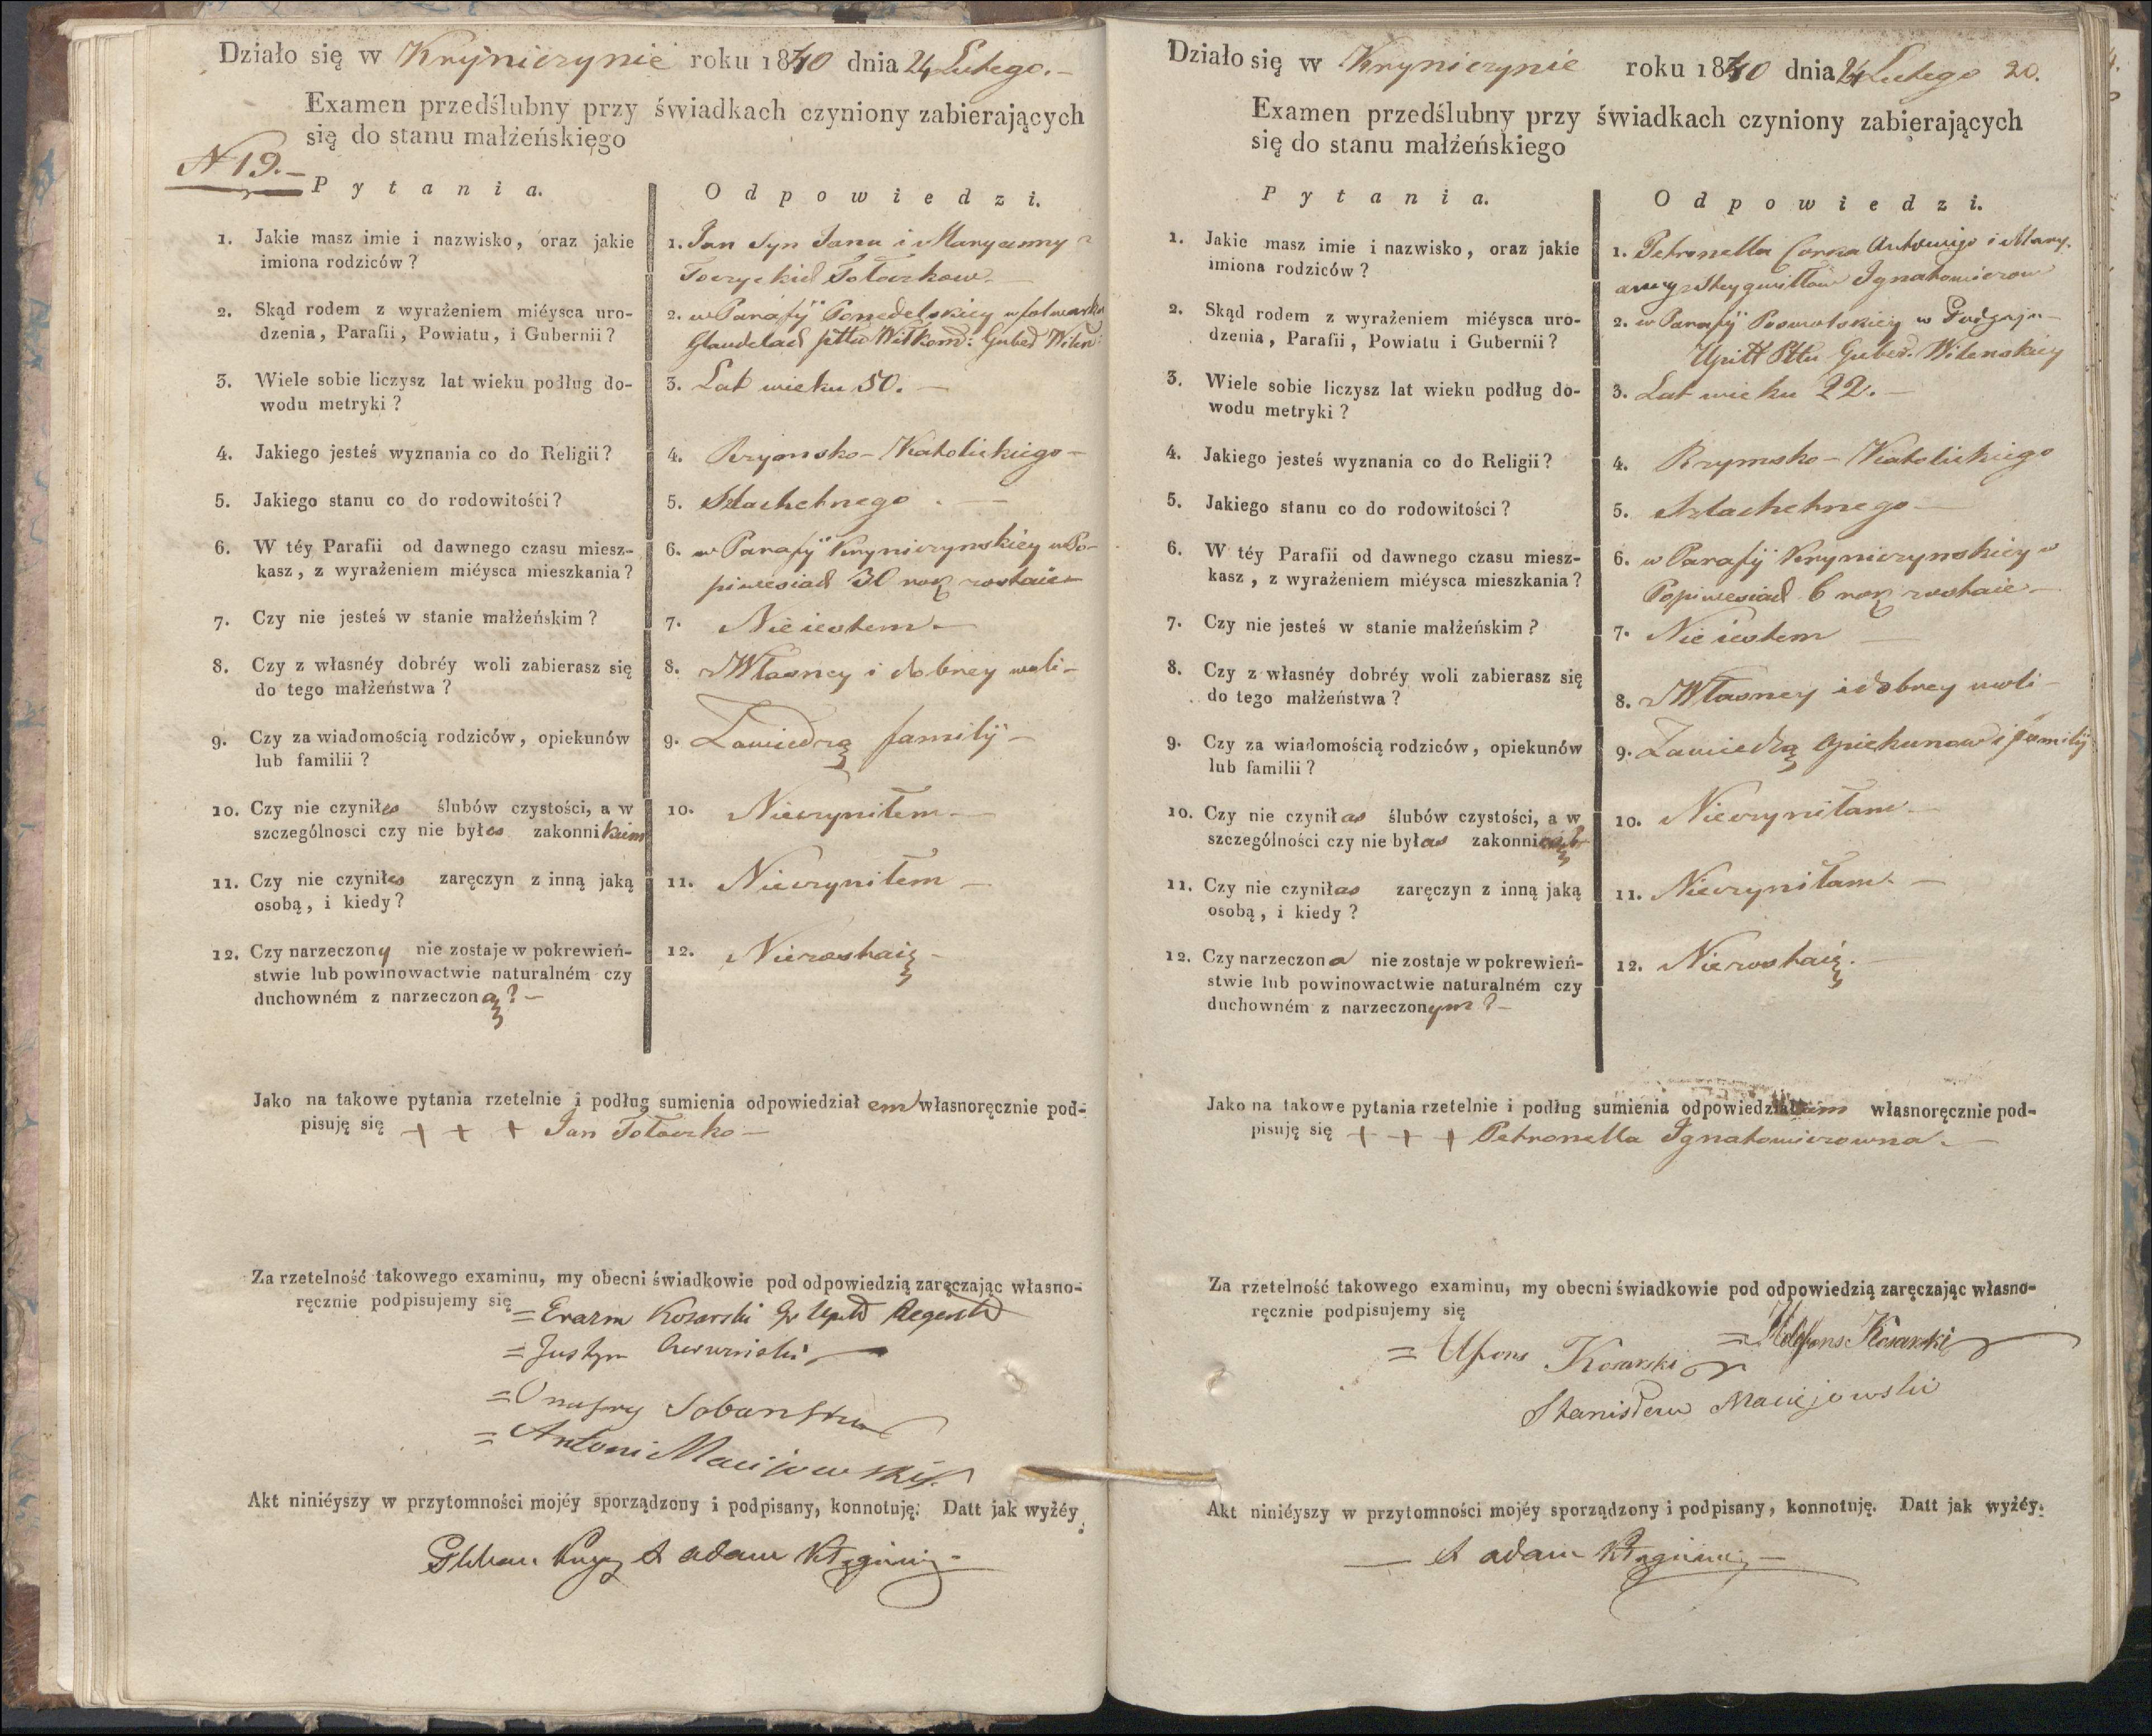 Działo się w Kryniczynie roku 1840 dnia 24 Lutego. –
Examen przedślubny przy świadkach czyniony zabierających
się do stanu małżeńskiego
N 19. –
Pytania.
Odpowiedzi.
1. Jakie masz imie i nazwisko, oraz jakie
imiona rodziców?
1. Jan Syn Jana i Maryanny z
Tołoczkow. –
2. Skąd rodem z wyrażeniem miéysca uro-
dzenia, Parafii, Powiatu, i Gubernii?
2. w Parafÿ Ponedelskiey w folwarku
Wiłkom: Wilen:
3. Wiele sobie liczysz lat wieku podług do-
wodu metryki?
3. Lat wieku 50. –
4. Jakiego jesteś wyznania co do Religii?
4. Rzymsko – Katolickiego –
5. Jakiego stanu co do rodowitości?
5. Szlachetnego. –
6. W téy Parafii od dawnego czasu miesz-
kasz, z wyrażeniem miéysca mieszkania?
6. w Parafÿ Kryniczynskiey w Po-
30 rok zostaie –
7. Czy nie jesteś w stanie małżeńskim?
7. Nie iestem –
8. Czy z własnéy dobréy woli zabierasz się
do tego małżeństwa?
8. z Własney i dobrey woli –
9. Czy za wiadomością rodziców, opiekunów
lub familii?
9. Zawiedzą familÿ –
10. Czy nie czyniłes ślubów czystości, a w
szczególnosci czy nie byłes zakonnikiem
10. Nieczyniłem –
11. Czy nie czyniłes zaręczyn z inną jaką
osobą, i kiedy?
11. Nieczyniłem –
12. Czy narzeczony nie zostaje w pokrewień-
stwie lub powinowactwie naturalném czy
duchowném z narzeczoną? –
12. Niezostaię –
Jako na takowe pytania rzetelnie i podług sumienia odpowiedziałem własnoręcznie pod-
pisuję się + + + Jan Tołoczko –
Za rzetelność takowego examinu, my obecni świadkowie pod odpowiedzią zaręczając własno-
ręcznie podpisujemy się
= Erazm Kosarski
= Justyn
= Onufry
= Antoni Maciiowski
Akt niniéyszy w przytomności mojéy sporządzony i podpisany, konnotuję. Datt jak wyżéy.
X Adam
Działo się w Kryniczynie roku 1840 dnia 24 Lutego 20.
Examen przedślubny przy świadkach czyniony zabierających
się do stanu małżeńskiego
Pytania.
Odpowiedzi.
1. Jakie masz imie i nazwisko, oraz jakie
imiona rodziców?
1. Petronella Corka Antoniego i Mary-
anny z Ignatowiczow
2. Skąd rodem z wyrażeniem miéysca uro-
dzenia, Parafii, Powiatu i Gubernii?
2. w Parafÿ w
Upitt Pttu Guber. Wilenskiey
3. Wiele sobie liczysz lat wieku podług do-
wodu metryki?
3. Lat wieku 22. –
4. Jakiego jesteś wyznania co do Religii?
4. Rzymsko – Katolickiego
5. Jakiego stanu co do rodowitości?
5. Szlachetnego –
6. W téy Parafii od dawnego czasu miesz-
kasz, z wyrażeniem miéysca mieszkania?
6. w Parafÿ Kryniczynskiey w
6 rok zostaie –
7. Czy nie jesteś w stanie małżeńskim?
7. Nie iestem –
8. Czy z własnéy dobréy woli zabierasz się
do tego małżeństwa?
8. z Własney i dobrey woli –
9. Czy za wiadomością rodziców, opiekunów
lub familii?
9. Zawiedzą opiekunow i familÿ
10. Czy nie czyniłas ślubów czystości, a w
szczególności czy nie byłas zakonnicą
10. Nieczyniłam –
11. Czy nie czyniłas zaręczyn z inną jaką
osobą, i kiedy?
11. Nieczyniłam. –
12. Czy narzeczona nie zostaje w pokrewień-
stwie lub powinowactwie naturalném czy
duchowném z narzeczonym? –
12. Niezostaię. –
Jako na takowe pytania rzetelnie i podług sumienia odpowiedziałam własnoręcznie pod-
pisuję się + + + Petronella Ignatowiczowna. –
Za rzetelność takowego examinu, my obecni świadkowie pod odpowiedzią zaręczając własno-
ręcznie podpisujemy się
= Ildefons Kosarski
= Alfons Kosarski
Stanisław Maciejowski
Akt niniéyszy w przytomności mojéy sporządzony i podpisany, konnotuję. Datt jak wyżéy.
– X Adam